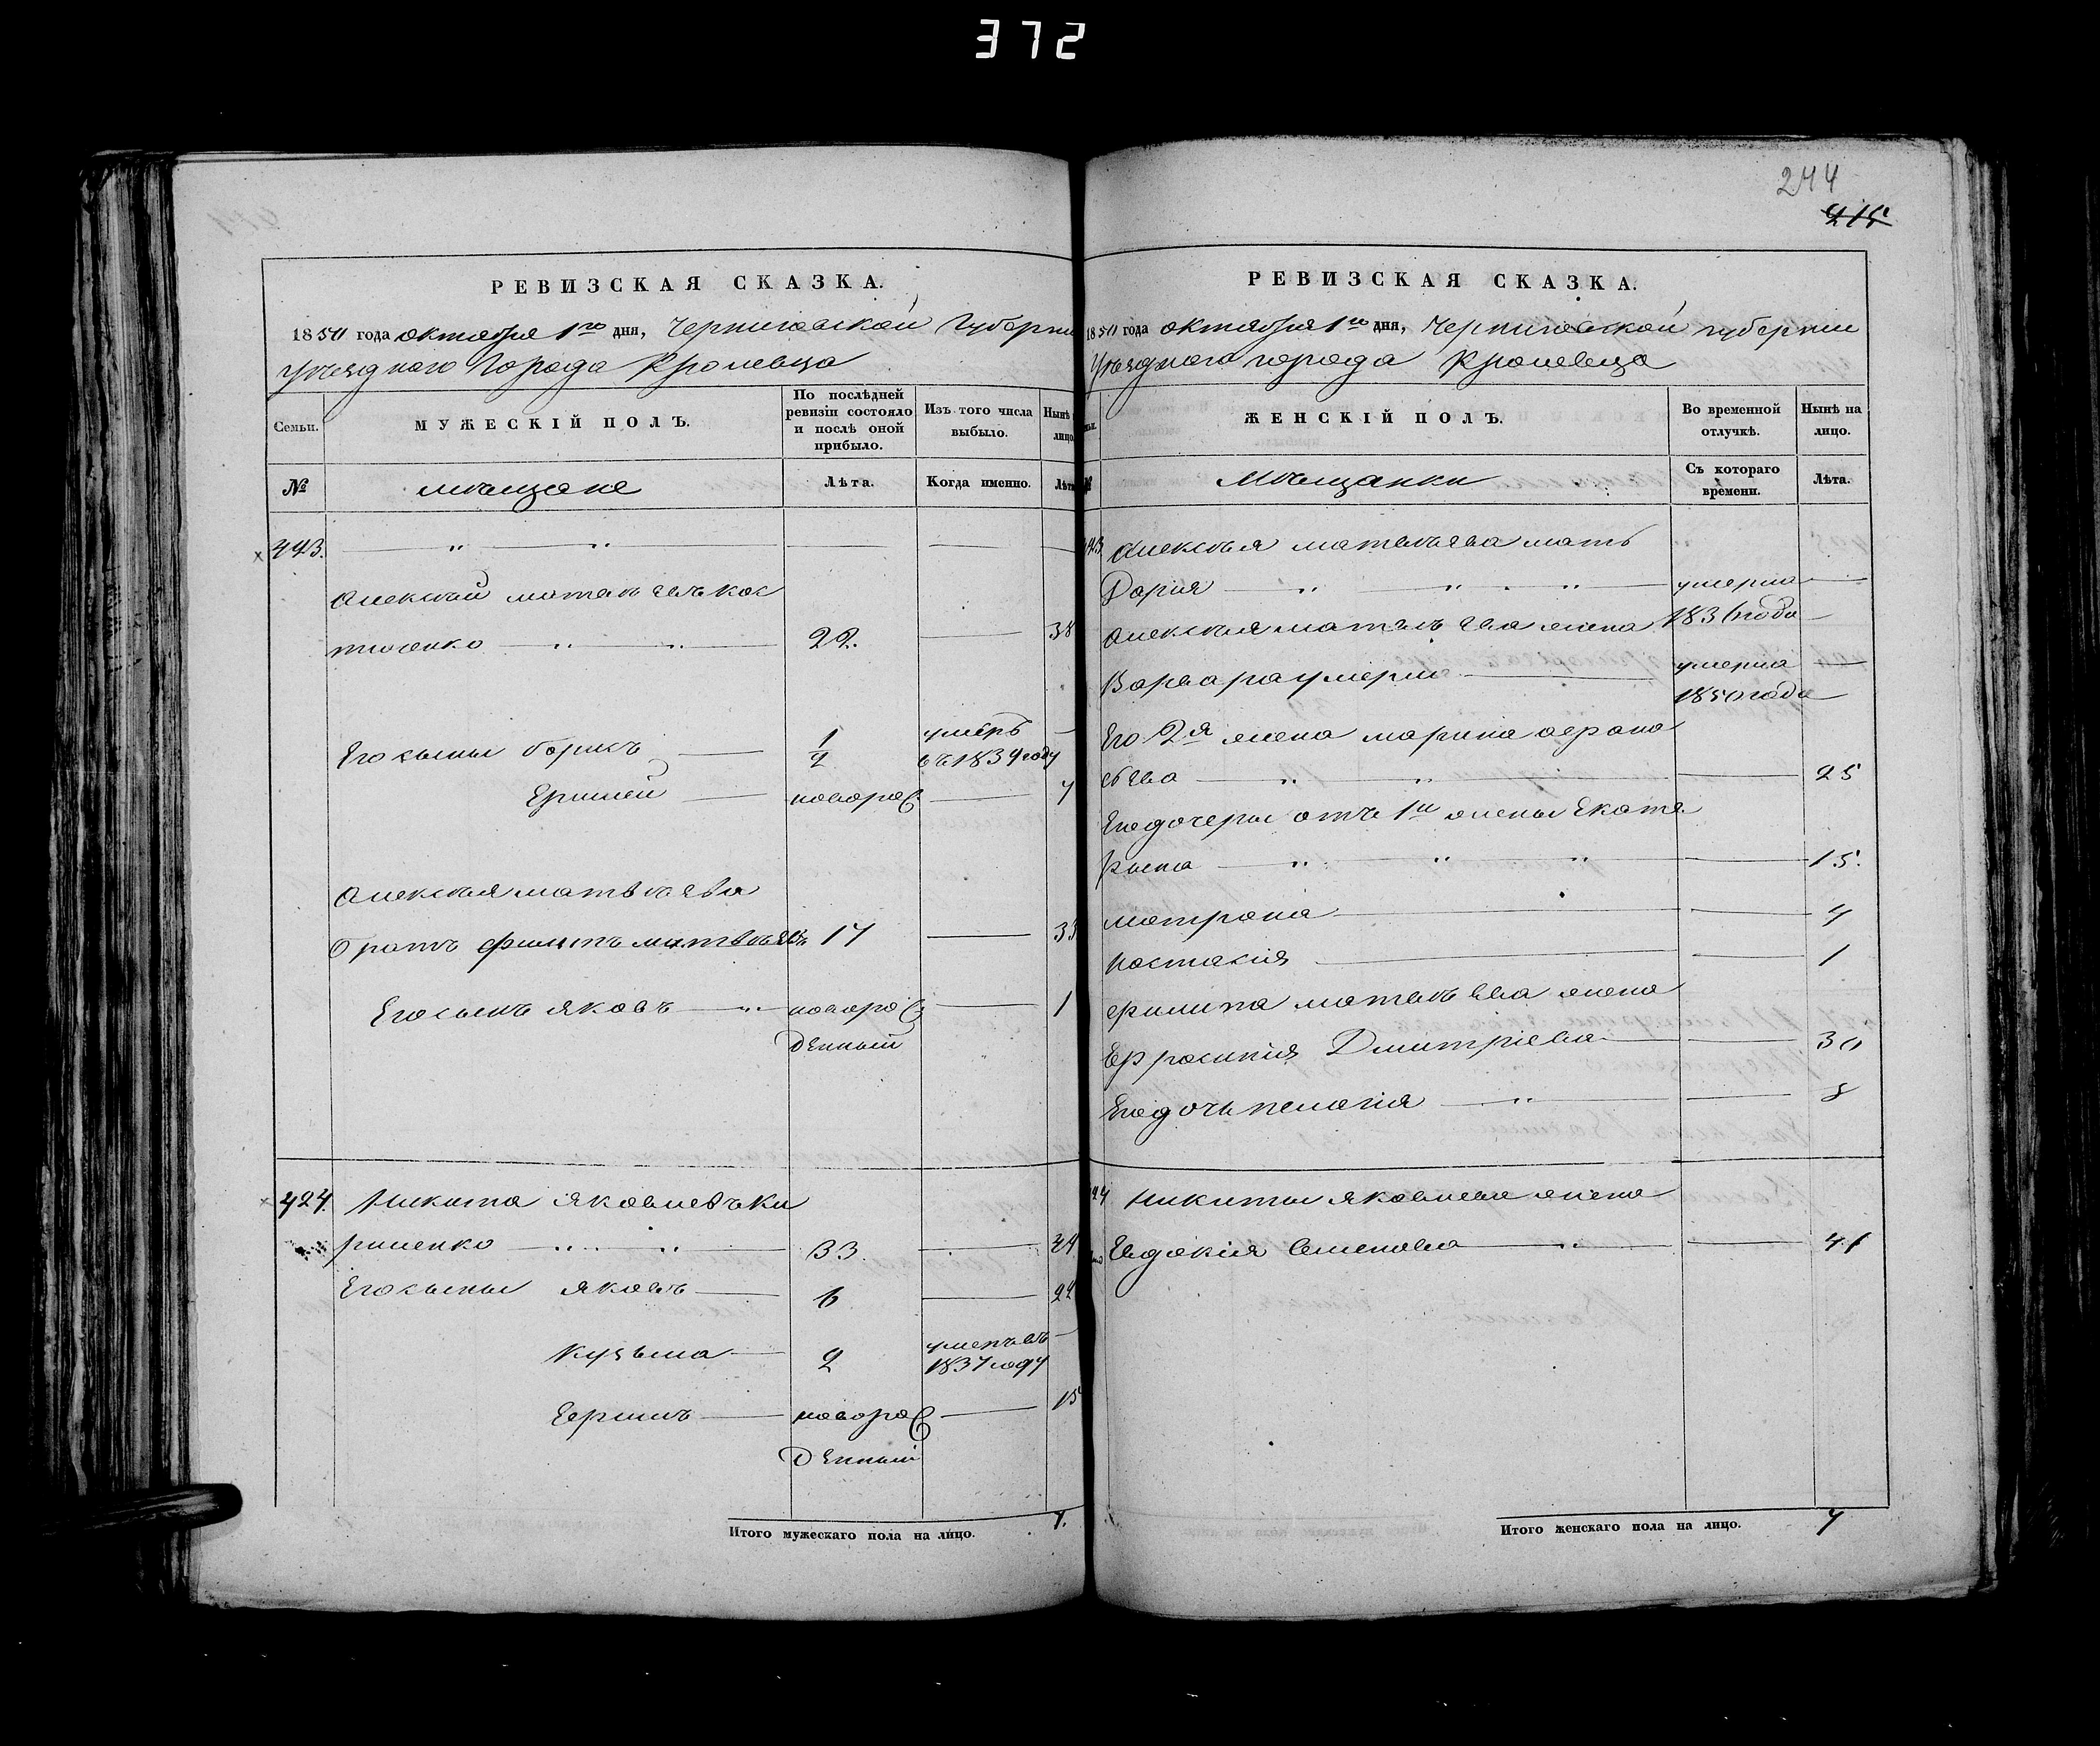 372
244
215
РЕВИЗСКАЯ СКАЗКА.
1850 года октября 1го дня, Черниговской Губерни
Уѣзднаго Города Кролевца
Семьи.
МУЖЕСКІЙ ПОЛЪ.
По послѣдней ревизіи состояло и послѣ оной прибыло.
Изъ того числа выбыло.
Нынѣ лицо
№
мѣщане
Лѣта.
Когда именно.
Лѣта
443.
Алексѣй матвѣевъ кос
тюченко 22. 38
Его сыны борисъ 1/2 умеръ въ 1834 году
Ермолей новорож 7
Алексѣя матвѣева
братъ филипъ матвѣевъ 17 33
Его сынъ яковъ новорож 1
денный
424. Никита яковлевъ Ки
риленко 33. 49
Его сыны яковъ 6 22
кузьма 2 умеръ въ 1837 году
Ефимъ новорож 15
денный
Итого мужескаго пола на лицо. 7.
РЕВИЗСКАЯ СКАЗКА.
1850 года октября 1го дня, Черниговской губерніи
Уѣзднаго города Кролевца
ЖЕНСКІЙ ПОЛЪ.
Во временной отлучкѣ.
Нынѣ на лицо.
№
Мѣщанки
Съ котораго времени.
Лѣта.
Алексѣя матвѣева мать
Дарія умерла
Алексѣя матвѣева жена 1836 года
Варвара умерла умерла
1850 года
Его 2я жена марина афана
сьева 25
Его дочери отъ 1й жены Екате
рина 15.
матрона 4
настасія 1
филипа матвѣева жена
Ефросинія Дмитріева 30
Его дочь пелагія 8
Никиты яковлева жена
Евдокія Семенова 41
Итого женскаго пола на лицо. 7